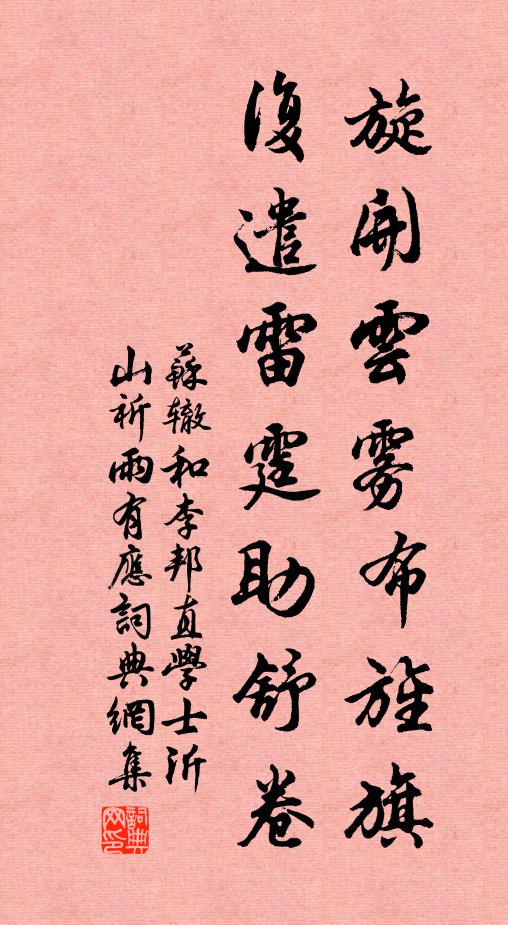 旋開雲霧布旌旗
復遣雷霆助舒卷
蘇辙和李邦直學士沂
山祈雨有應詞典網集
詞典
网印